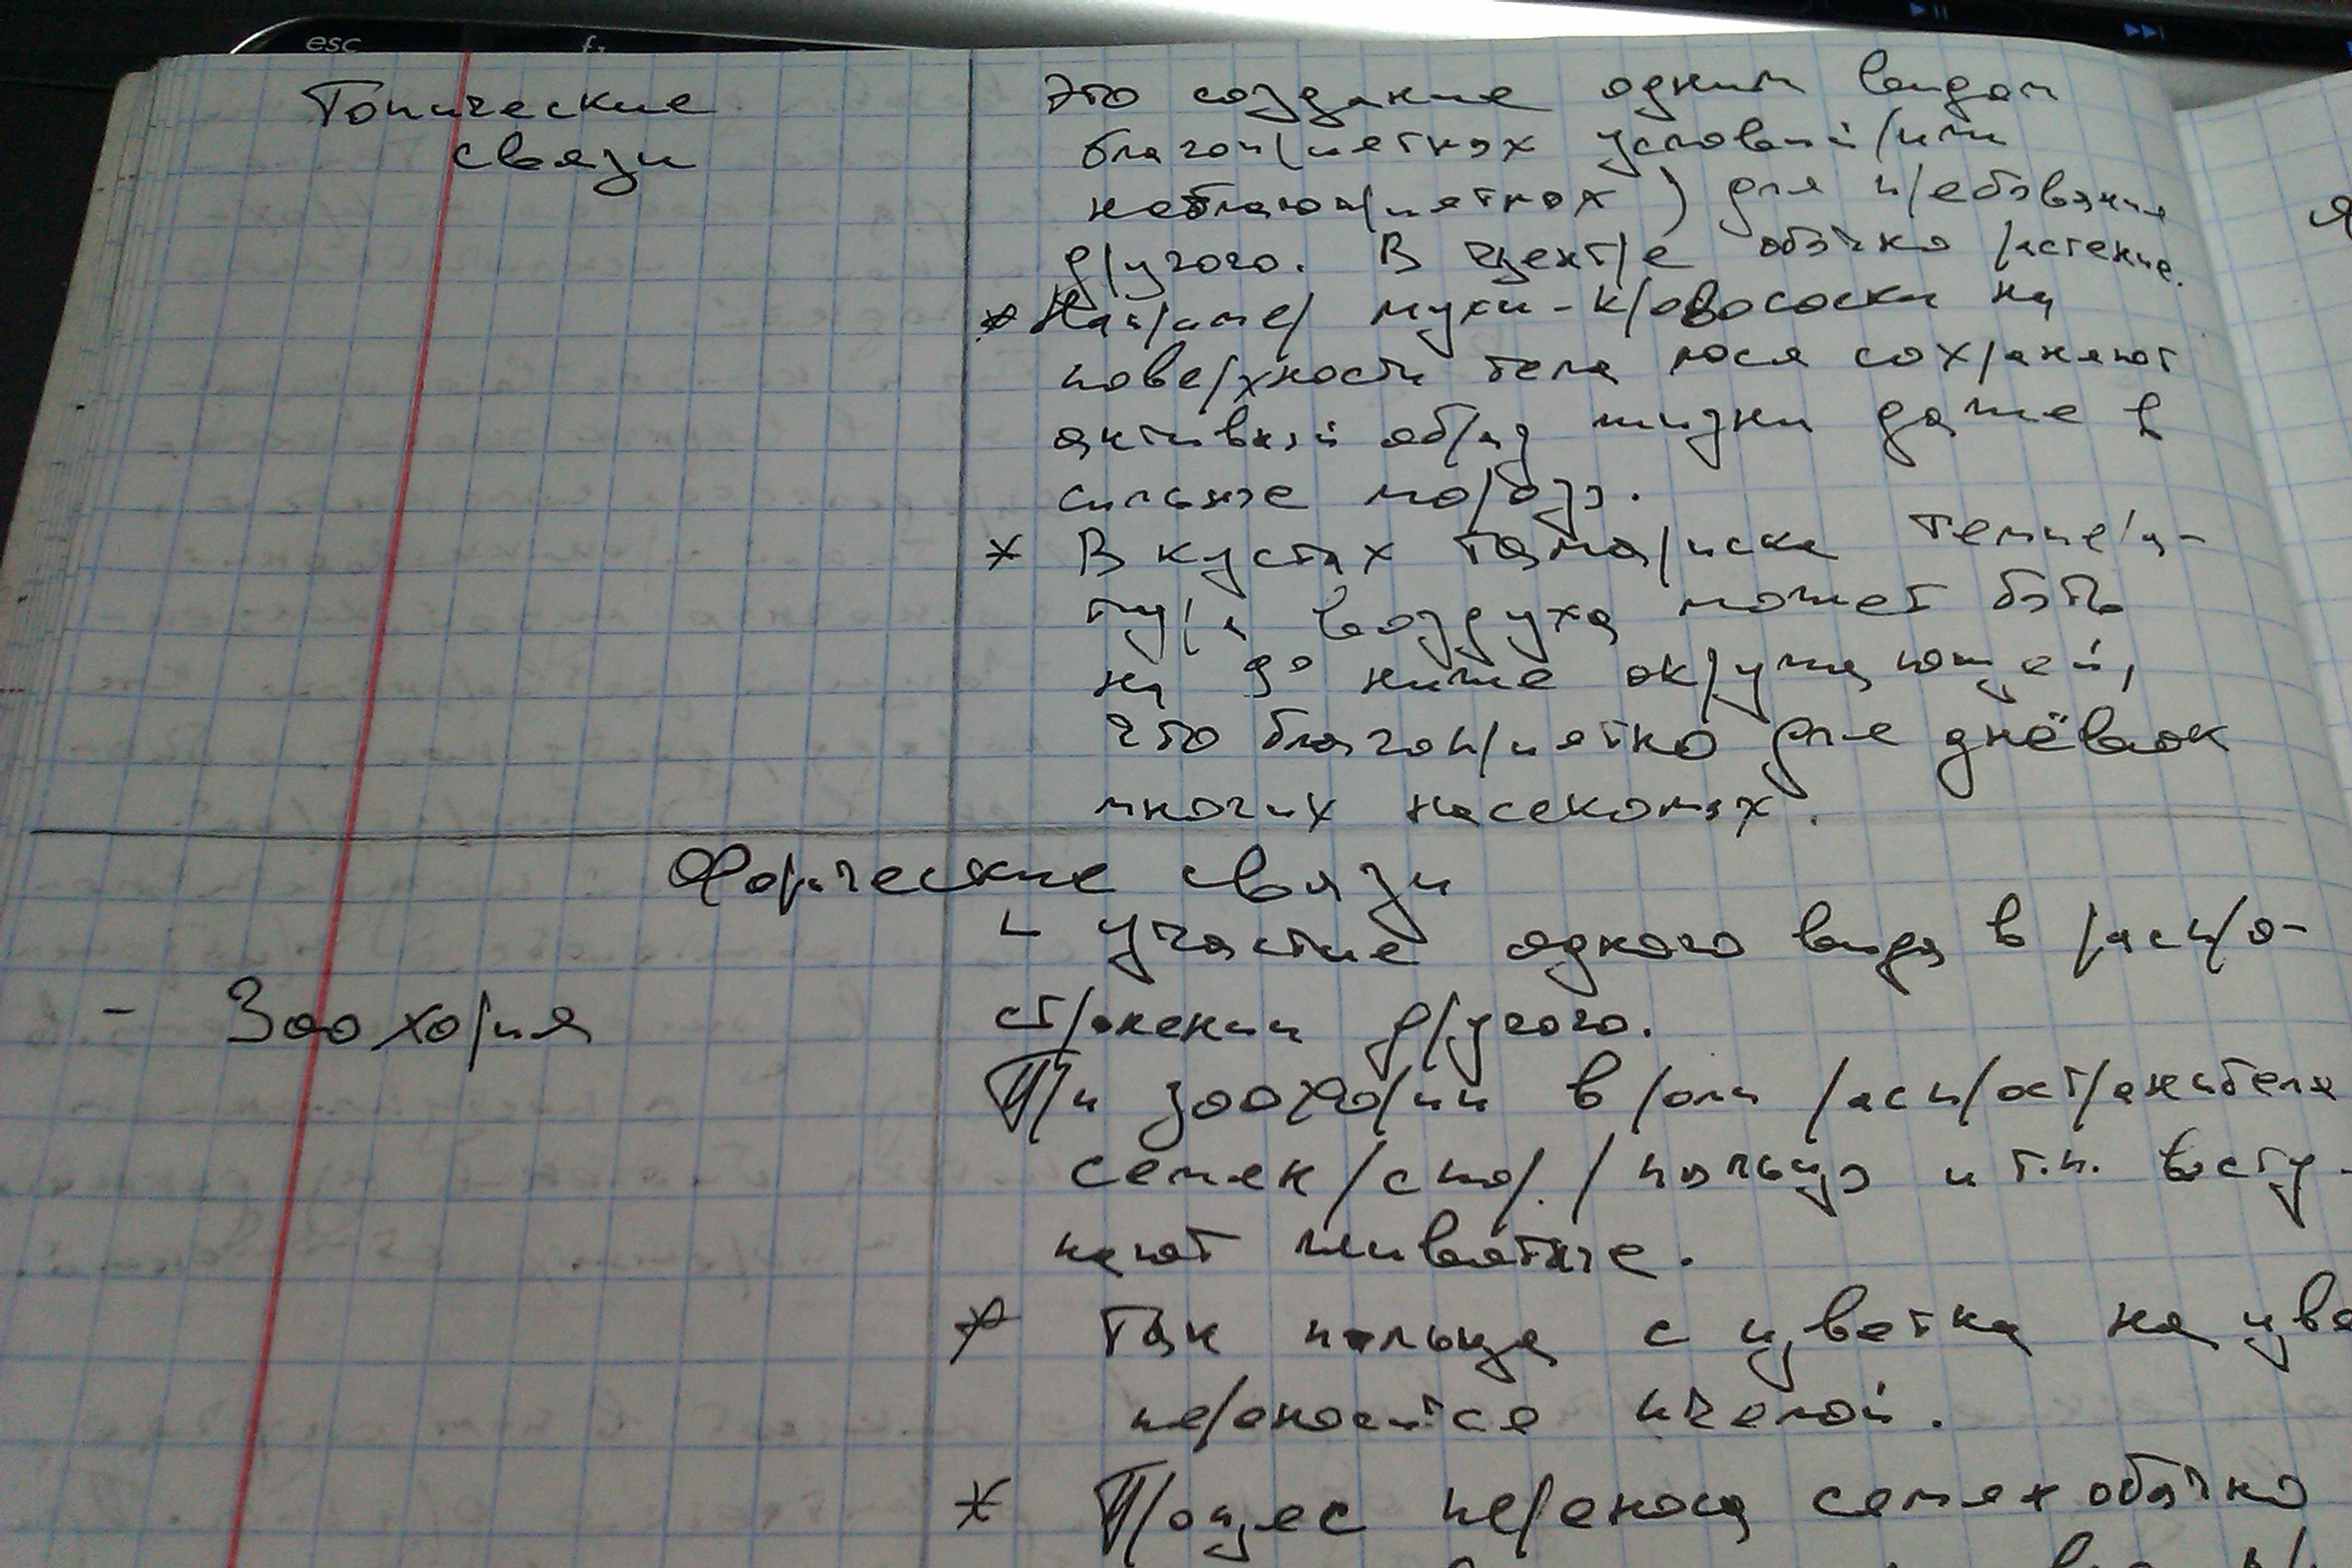 esc
Топические
связи
Это создание одним видом
благоприятных условий (или
неблагоприятных) для пребывания
другого. В центре обычно растение.
* Например мухи-кровососки на
поверхности тела лося сохраняют
активный образ жизни даже в
сильные морозы.
* В кустах тамариска темпера-
тура воздуха может быть
на 9° ниже окружающей,
что благоприятно для днёвок
многих насекомых.
Форические связи
участие одного вида в распро-
странении другого.
- Зоохория
При зоохории в роли распространителя
семян/спор/пыльцы и т.п. высту-
пают животные.
* Так пыльца с цветка на цве
переносится пчелой.
* Процес переноса семян обычно